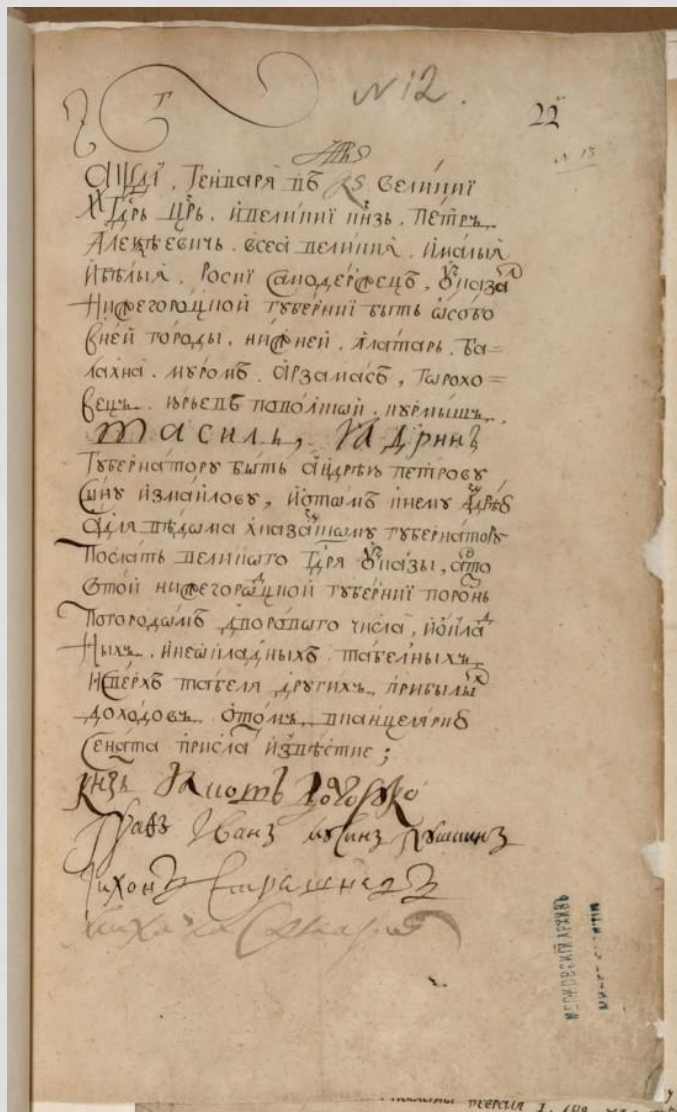 № 12.
22
№ 13
҂аѱдı, генваря въ кѕ великиі
гдрь црь, и великиі кнзь, петръ
алеѯѣевичь, всеа великия, и малыя
и бѣлыя, росиі самодержецъ, указа
нижегороцкой губерниі быть ѡсобо
в ней городы, нижней, алатарь, ба=
лахна, муромъ, арзамасъ, горохо=
вецъ, юрьевъ поволской, курмышъ,
василь, ядринъ
губернатору быть андрѣю петрову
сыну измайлову, и о томъ к нему
а для вѣдома х казанскому губернатору
послать великого гдря указы, а что
с той нижегороцкой губерниі порознь
по городамъ дворового числа, и окла
ных, и неѡкладныхъ табелныхъ
и сверхъ табеля других прибылых
доходовъ о томъ в канцелярию
сената прислать извѣстие;
кнзь Яковъ Долгоруко
граѳъ Иванъ мусинъ пушкинъ
Тихонъ Стрешневъ
михаила Самарин
МОСКОВСКІЙ АРХИВЪ
МИНИСТ. ЮСТИЦІИ